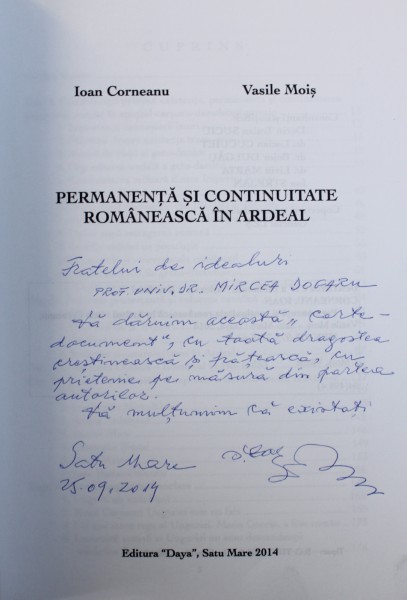 Ioan Corneanu Vasile Moiș
PERMANENȚĂ ȘI CONTINUITATE
ROMÂNEASCĂ ÎN ARDEAL
Fratelui de idealuri
PROF. UNIV. DR. MIRCEA DOGARU
Vă dăruim această „carte-
document", cu toată dragostea
creștinească și frățească, cu
prietenie pe măsură din partea
autorilor.
Vă mulțumim că existați
Satu Mare
25.09.2014
Editura "Daya", Satu Mare 2014